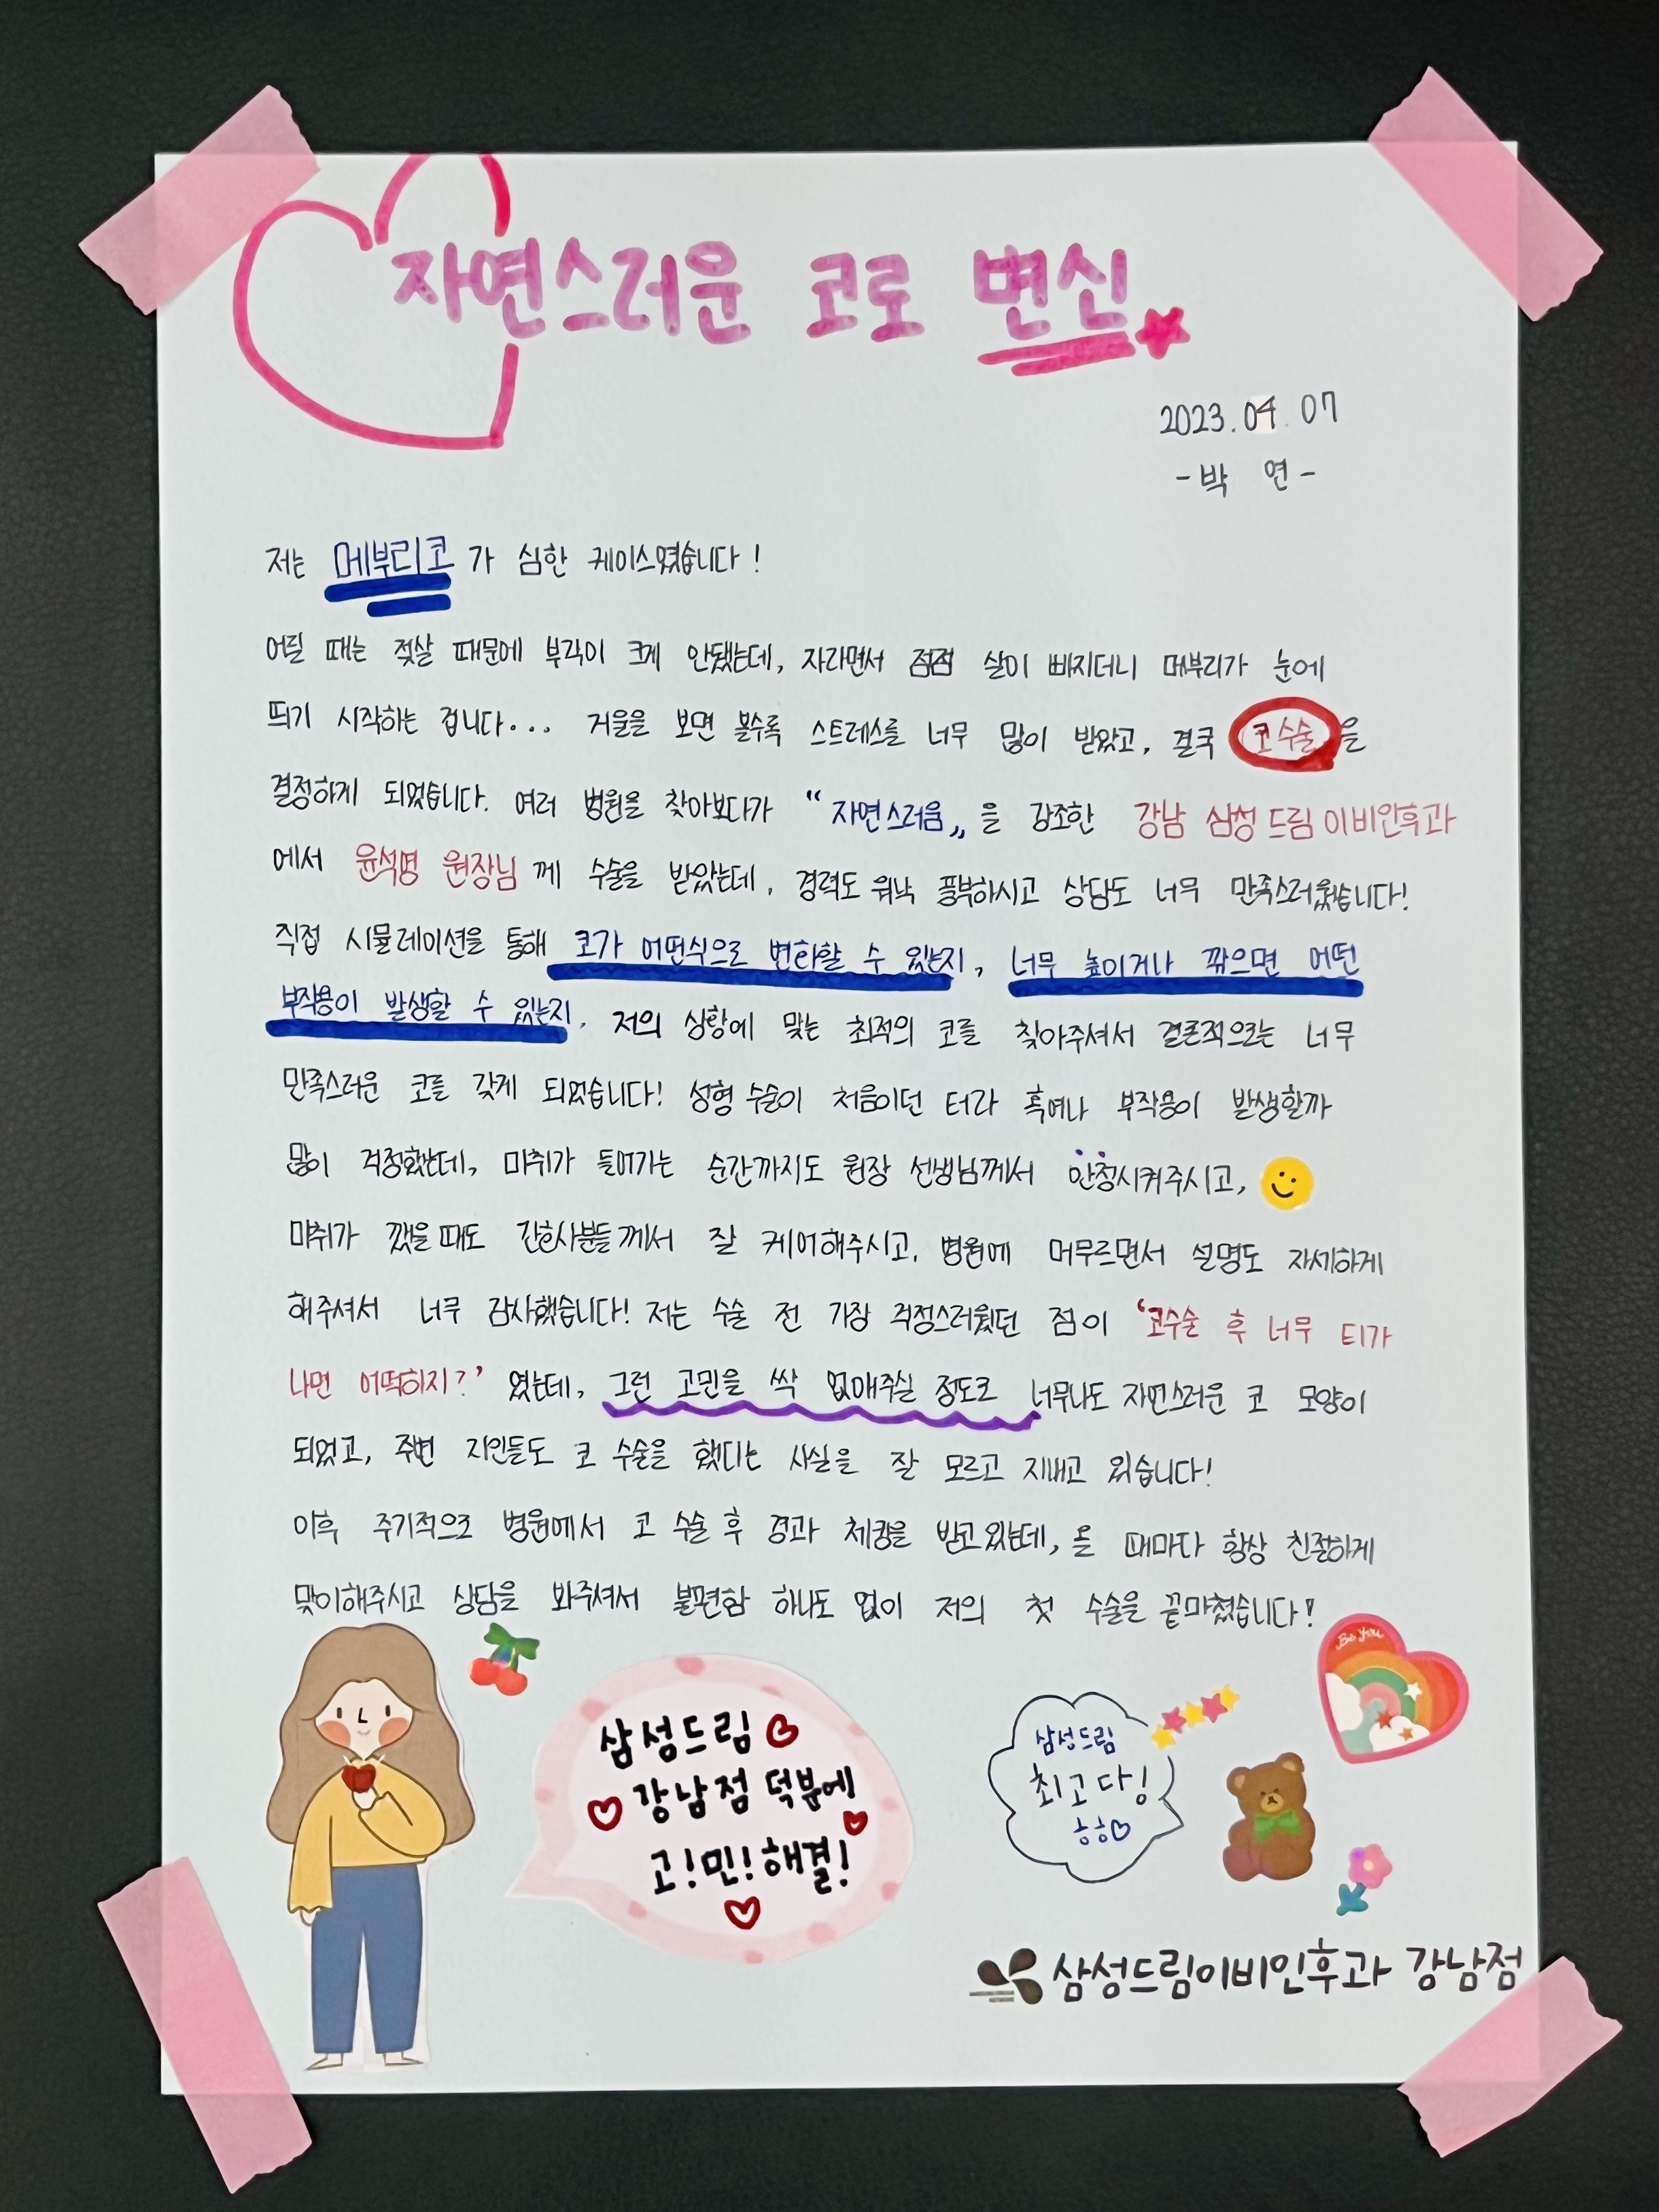 자연스러운 코로 변신
2023.04.07
-박 연-
저는 메부리코가 심한 케이스였습니다!
어릴 때는 젖살 때문에 부각이 크게 안됐는데, 자라면서 점점 살이 빠지더니 매부리가 눈에
띄기 시작하는 겁니다... 거울을 보면 볼수록 스트레스를 너무 많이 받았고, 결국 코수술을
결정하게 되었습니다. 여러 병원을 찾아보다가 "자연스러움"을 강조한 강남 삼성드림이비인후과
에서 윤석명 원장님께 수술을 받았는데, 경력도 워낙 풍부하시고 상담도 너무 만족스러웠습니다!
직접 시뮬레이션을 통해 코가 어떤식으로 변화할 수 있는지, 너무 높이거나 깎으면 어떤
부작용이 발생할 수 있는지, 저의 상황에 맞는 최적의 코를 찾아주셔서 결론적으로는 너무
만족스러운 코를 갖게 되었습니다! 성형 수술이 처음이던 터라 혹여나 부작용이 발생할까
많이 걱정했는데, 마취가 들어가는 순간까지도 원장 선생님께서 안정시켜주시고,
마취가 깼을때도 간호사분들께서 잘 케어해주시고, 병원에 머무르면서 설명도 자세하게
해주셔서 너무 감사했습니다! 저는 수술 전 가장 걱정스러웠던 점이 '코수술 후 너무 티가
나면 어떡하지?' 였는데, 그런 고민을 싹 없애주실 정도로 너무나도 자연스러운 코 모양이
되었고, 주변 지인들도 코 수술을 했다는 사실을 잘 모르고 지내고 있습니다!
이후 주기적으로 병원에서 코 수술 후 경과 체크를 받고있는데, 올 때마다 항상 친절하게
맞이해주시고 상담을 봐주셔서 불편함 하나도 없이 저의 첫 수술을 끝마쳤습니다!
Be You
삼성드림
강남점 덕분에
고!민!해결!
삼성드림
최고다!
ㅎㅎ♡
삼성드림이비인후과 강남점